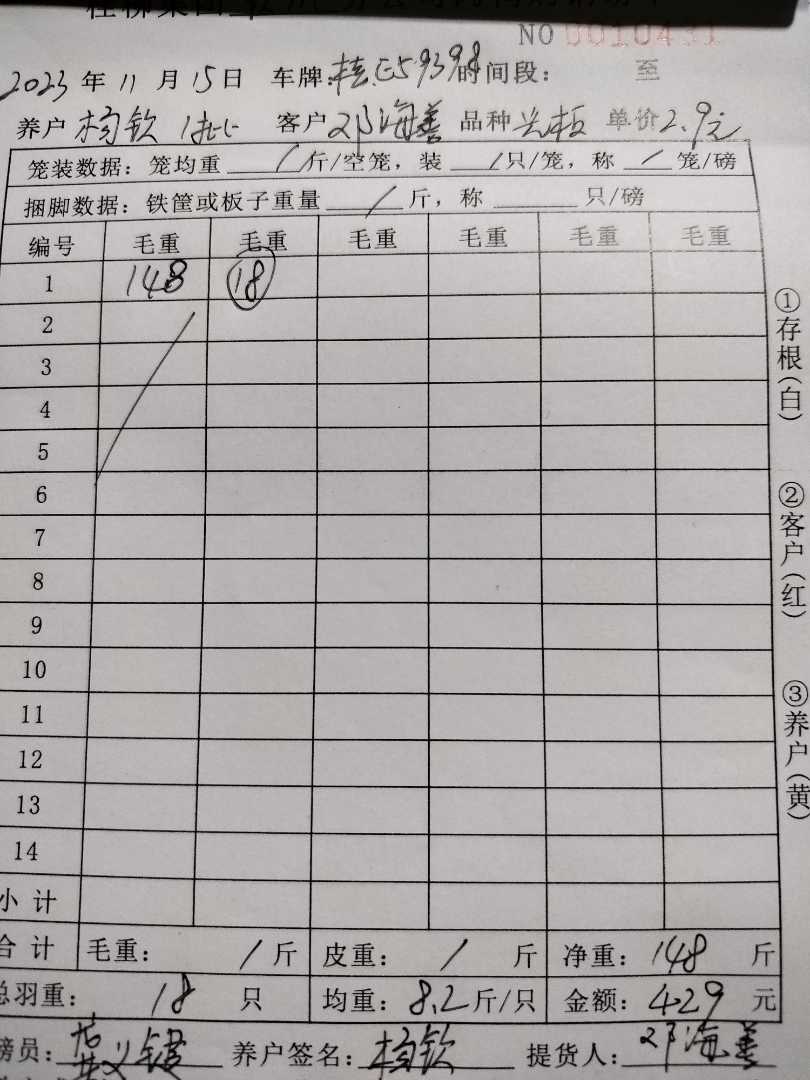 NO 0010431
2023 年 11 月 15 日 车牌: 桂E59398 时间段: 至
养户 杨钦 1批 客户 邓海善 品种 单价 2.9元
笼装数据: 笼均重 / 斤/空笼, 装 / 只/笼, 称 / 笼/磅
捆脚数据: 铁筐或板子重量 / 斤, 称 只/磅
编号 毛重 毛重 毛重 毛重 毛重 毛重
1 148 18
2
3
4
5
6
7
8
9
10
11
12
13
14
小 计
合 计 毛重: / 斤 皮重: / 斤 净重: 148 斤
总羽重: 18 只 均重: 8.2 斤/只 金额: 429 元
磅员: 养户签名: 杨钦 提货人: 邓海善
①存根(白)
②客户(红)
③养户(黄)